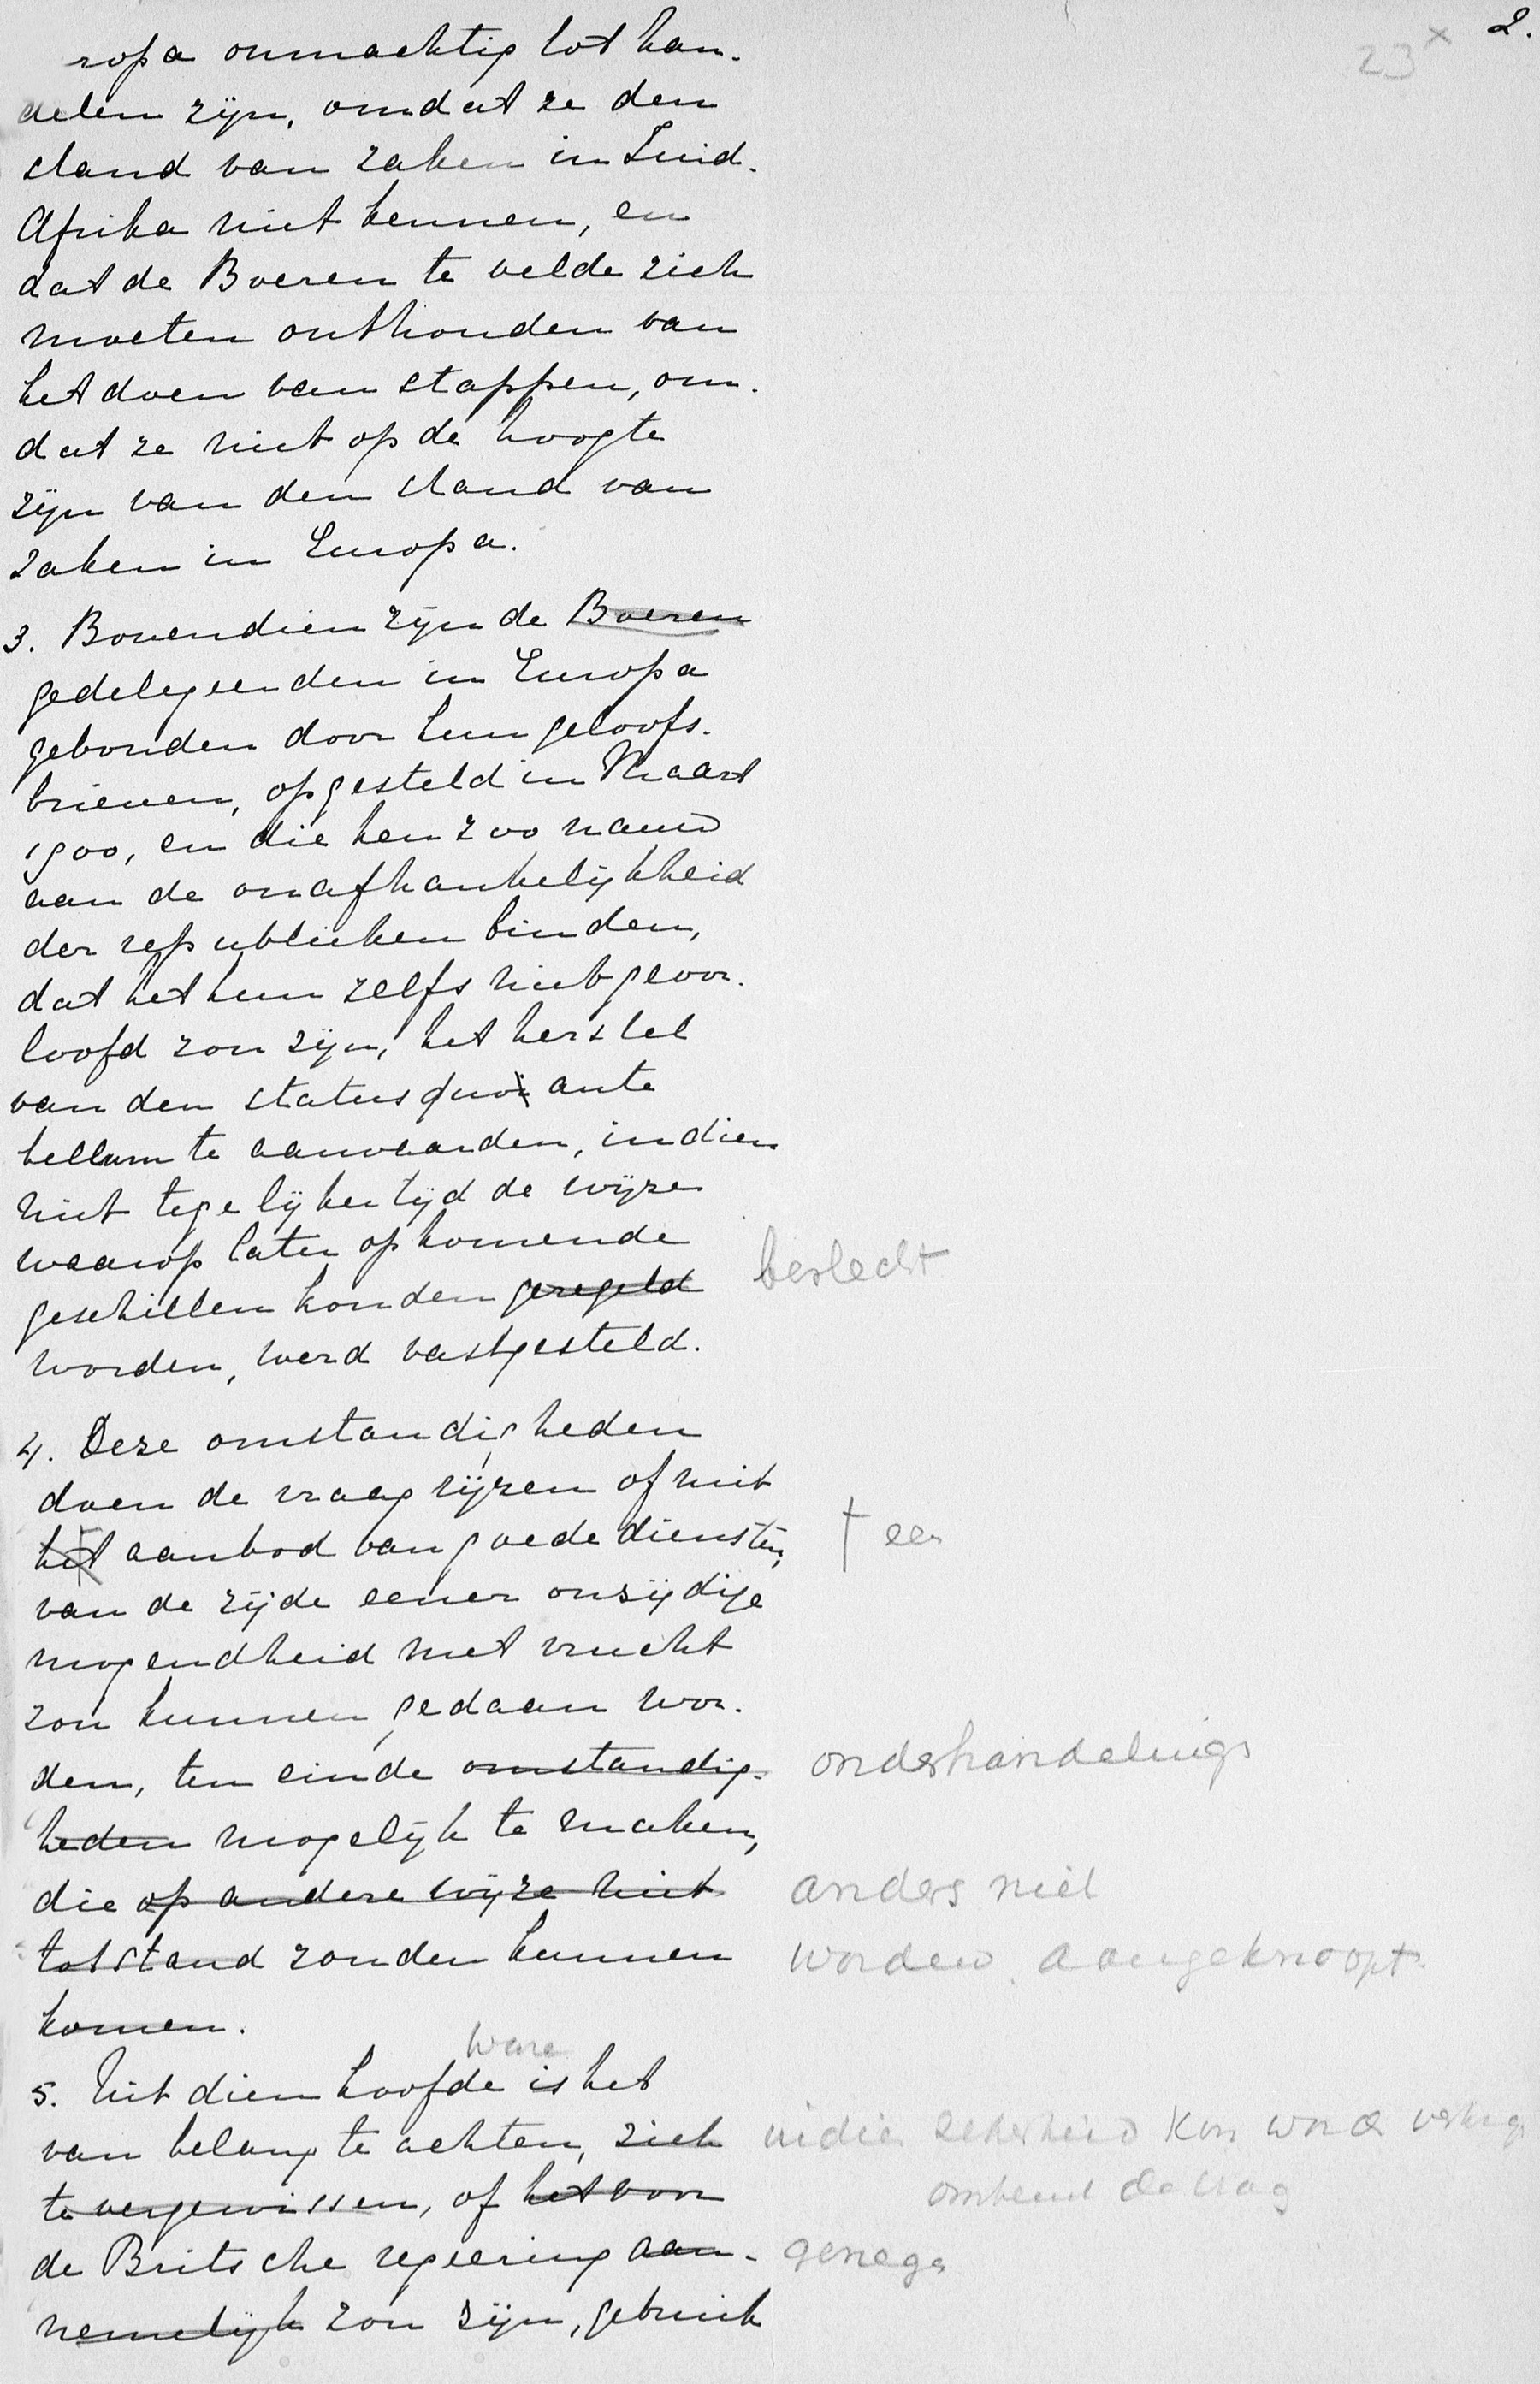 2.
23 x
ropa onmachtig tot han-
delen zijn, omdat ze den
stand van zaken in Zuid-
Afrika niet kennen, en
dat de Boeren te velde zich
moeten onthouden van
het doen van stappen, om-
dat ze niet op de hoogte
zijn van den stand van
zaken in Europa.
3. Bovendien zijn de Boeren
gedelegeerden in Europa
gebonden door hun geloofs-
brieven, opgesteld in Maart
1900, en die hen zoo nauw
aan de onafhankelijkheid
der republieken binden,
dat het hun zelfs niet geoor-
loofd zou zijn, het herstel
van den status quo ante
bellum te aanvaarden, indien
niet tegelijkertijd de wijze
waarop later opkomende
geschillen konden geregeld beslecht
worden, werd vastgesteld.
4. Deze omstandigheden
doen de vraag rijzen of niet
het aanbod van goede diensten, † een
van de zijde eener onzijdige
mogendheid met vrucht
zou kunnen gedaan wor-
den, ten einde omstandig- onderhandelings
heden mogelijk te maken,
die op andere wijze niet anders niet
tot stand zouden kunnen worden aangeknoopt.
komen.
ware
5. Uit dien hoofde is het
van belang te achten, zich indien zekerheid kon word verkreg
te vergewissen, of het voor omtrent de vraag
de Britsche regeering aan- genegen
nemelijk zou zijn, gebruik